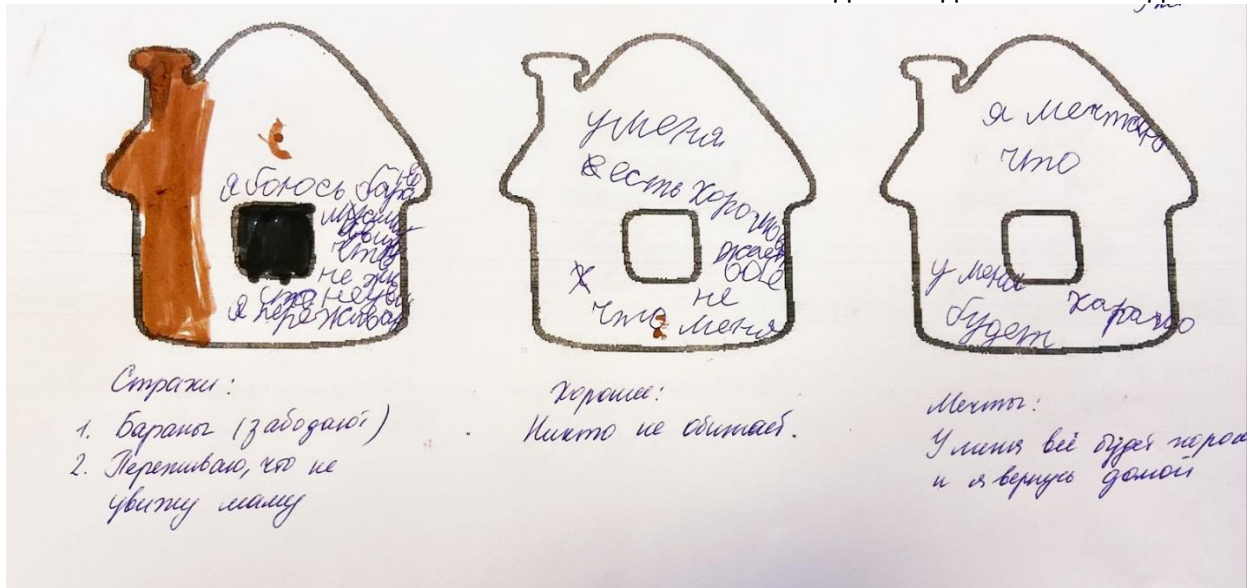 я боюсь бара
что
не
я переживаю
у меня
есть хорошо
что меня
не
боле
я мечтаю
что
у меня
будет харашо
Страхи:
1. Бараны (забодают)
2. Переживаю, что не
увижу маму
Хорошее:
Никто не обижает.
Мечты:
У меня всё будет хорош
и я вернусь домой